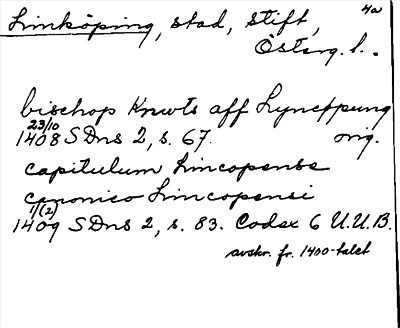 4a
Linköping, stad, stift,
Österg. l.
bischop Knwts aff Lyncøpung
23/10
1408 SDns 2, s. 67. orig.
capitulum Lincopense
canonico Lincopensi
1/(2)
1409 SDns 2, s. 83. Codex 6 U.U.B.
avskr. fr. 1400-talet